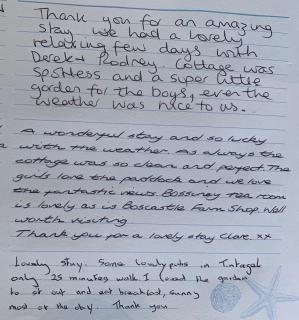 Thank you for an amazing
stay. we had a lovely
relaxing few days with
Derek + Rodney. Cottage was
spotless and a super little
garden for the boys, even the
weather was nice to us.
A wonderful stay and so lucky
with the weather. As always the
cottage was so clean and perfect. The
girls love the paddock and we love
the fantastic views. Bossiney Tea room
is lovely as is Boscastle Farm Shop. Well
worth visiting
Thank you for a lovely stay Clare. xx
Lovely stay. Some lovely pubs in Tintagel
only 25 minutes walk. I loved the garden
to sit out and eat breakfast, sunny
most of the day. Thank you